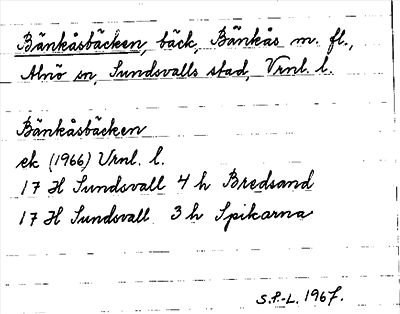 Bänkåsbäcken, bäck, Bänkås m. fl.,
Alnö sn, Sundsvalls stad, Vrnl. l.
Bänkåsbäcken
ek (1966) Vrnl. l.
17 H Sundsvall 4 h Bredsand
17 H Sundsvall 3 h Spikarna
S.P.-L. 1967.